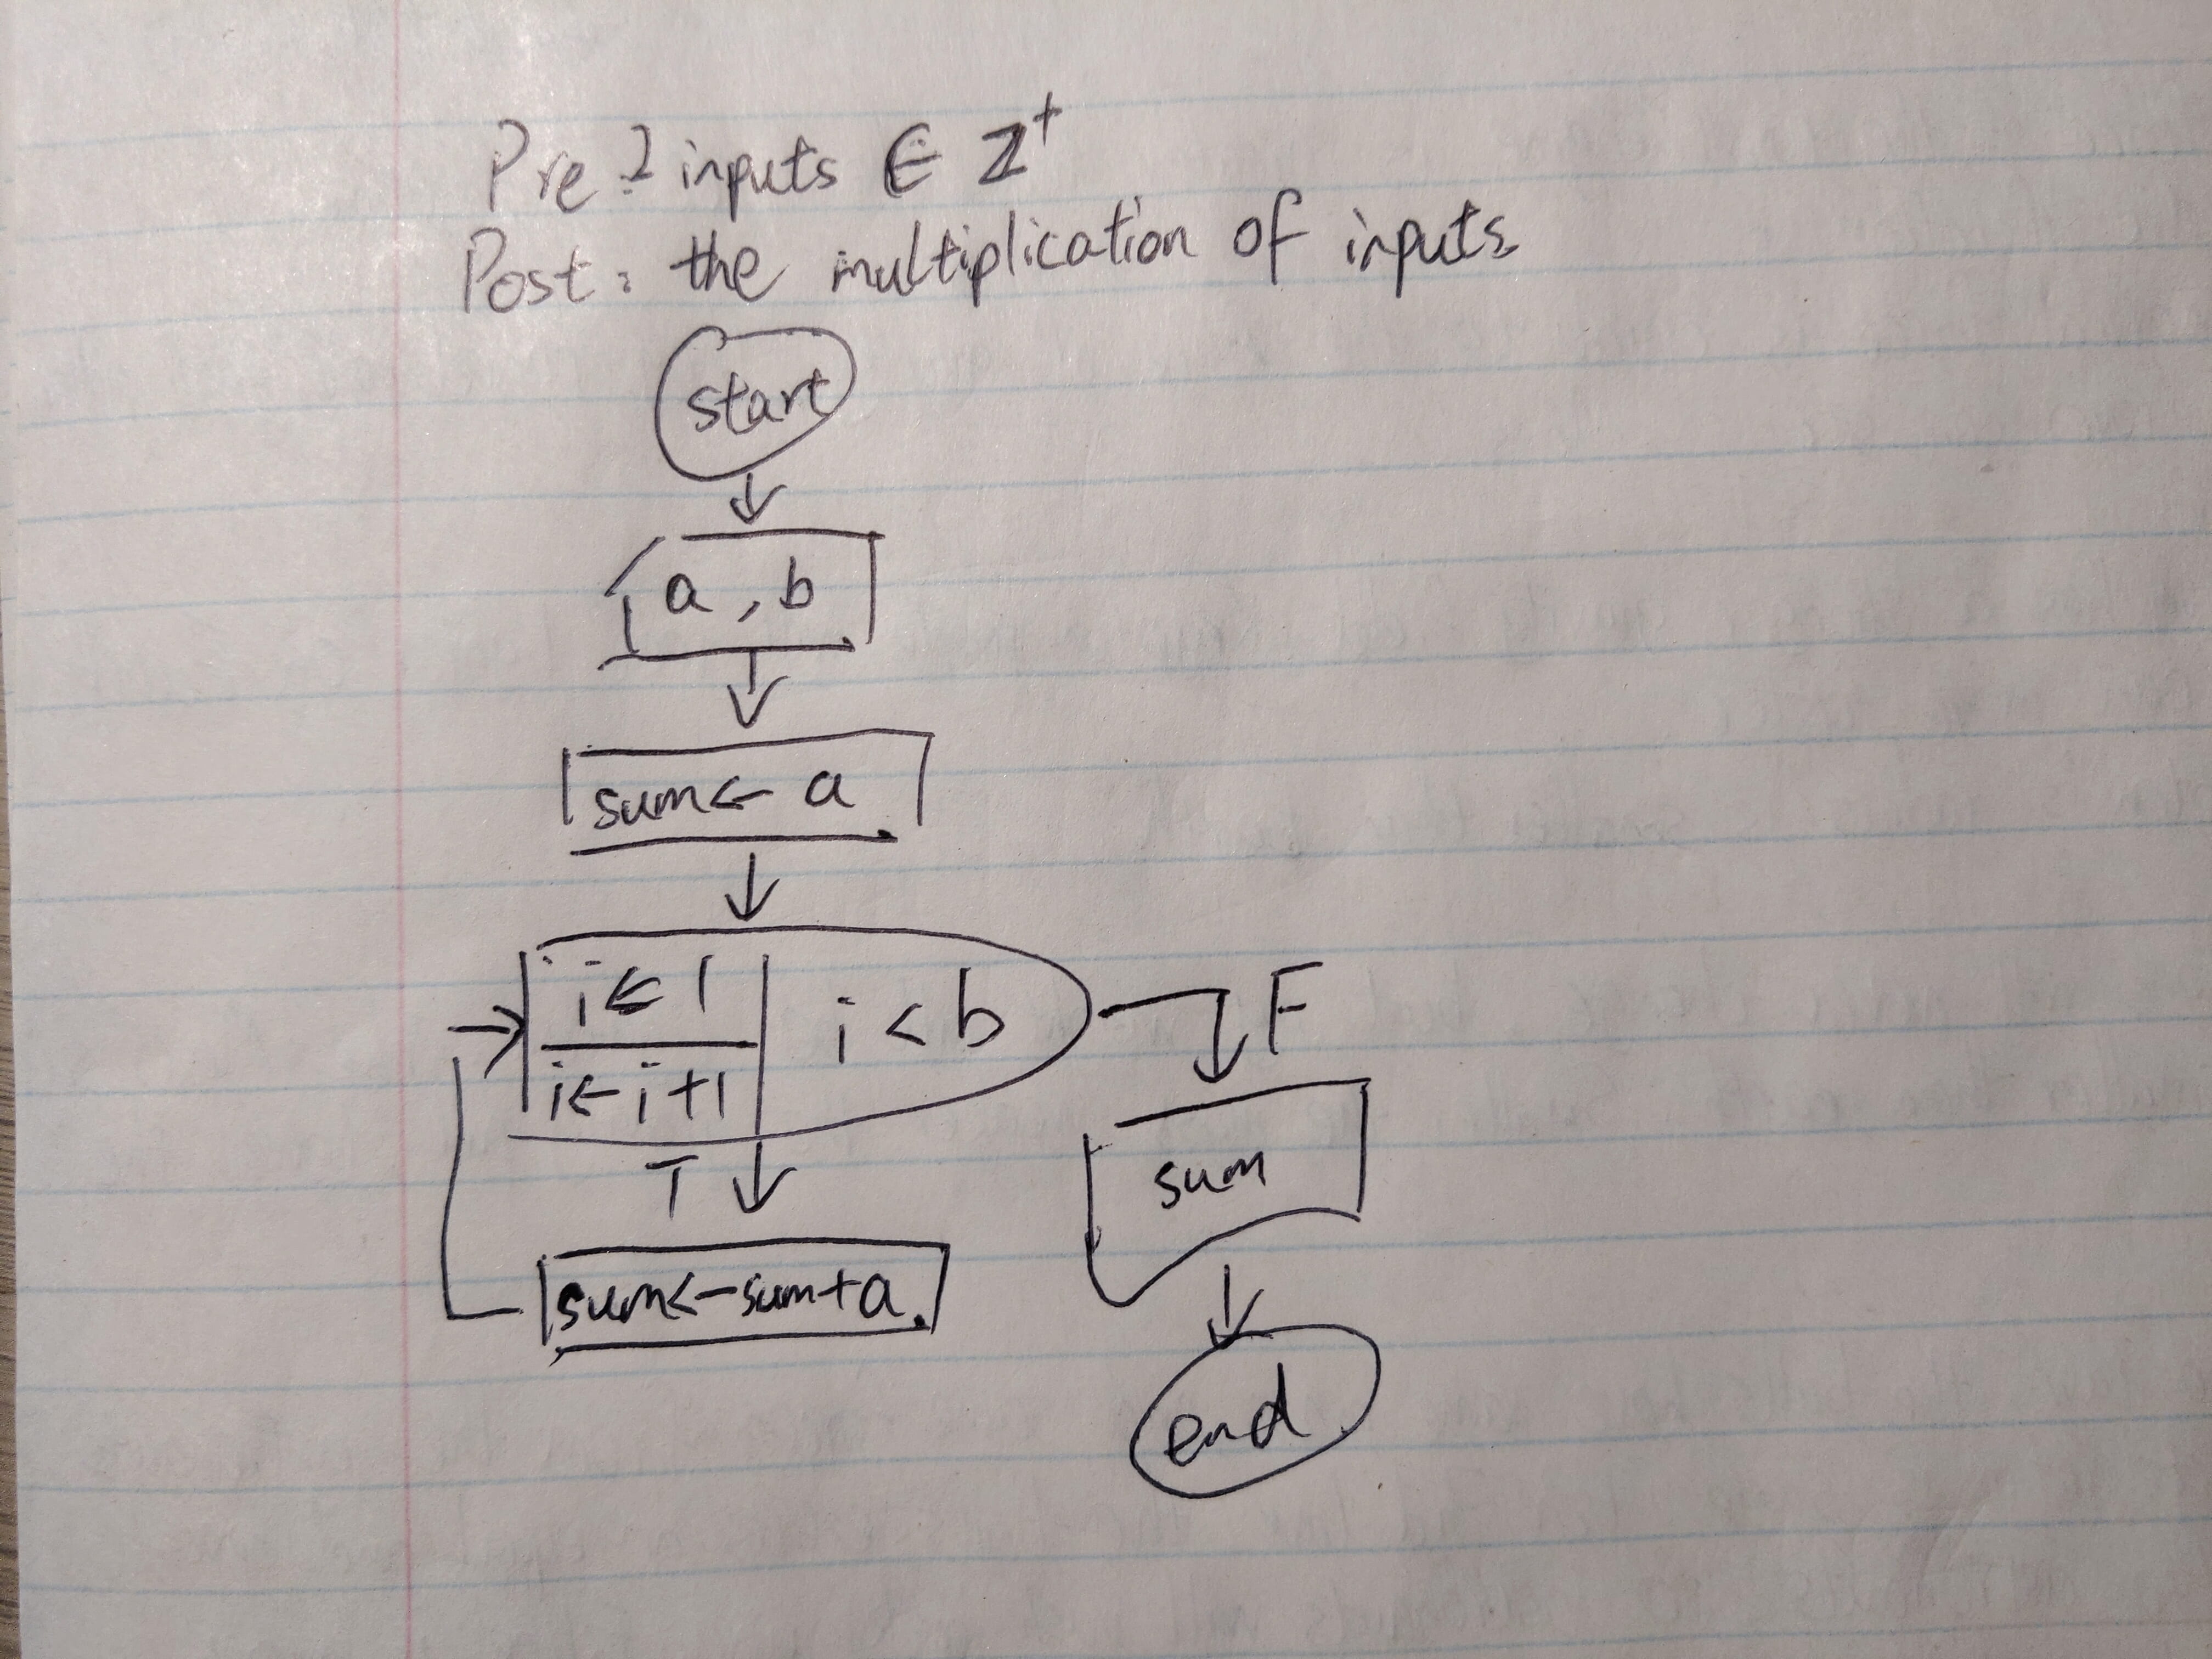 Pre: 2 inputs ∈ ℤ⁺
Post: the multiplication of inputs
start
a, b
sum ← a
i ← 1
i ← i + 1
i < b
F
T
sum
sum ← sum + a
end